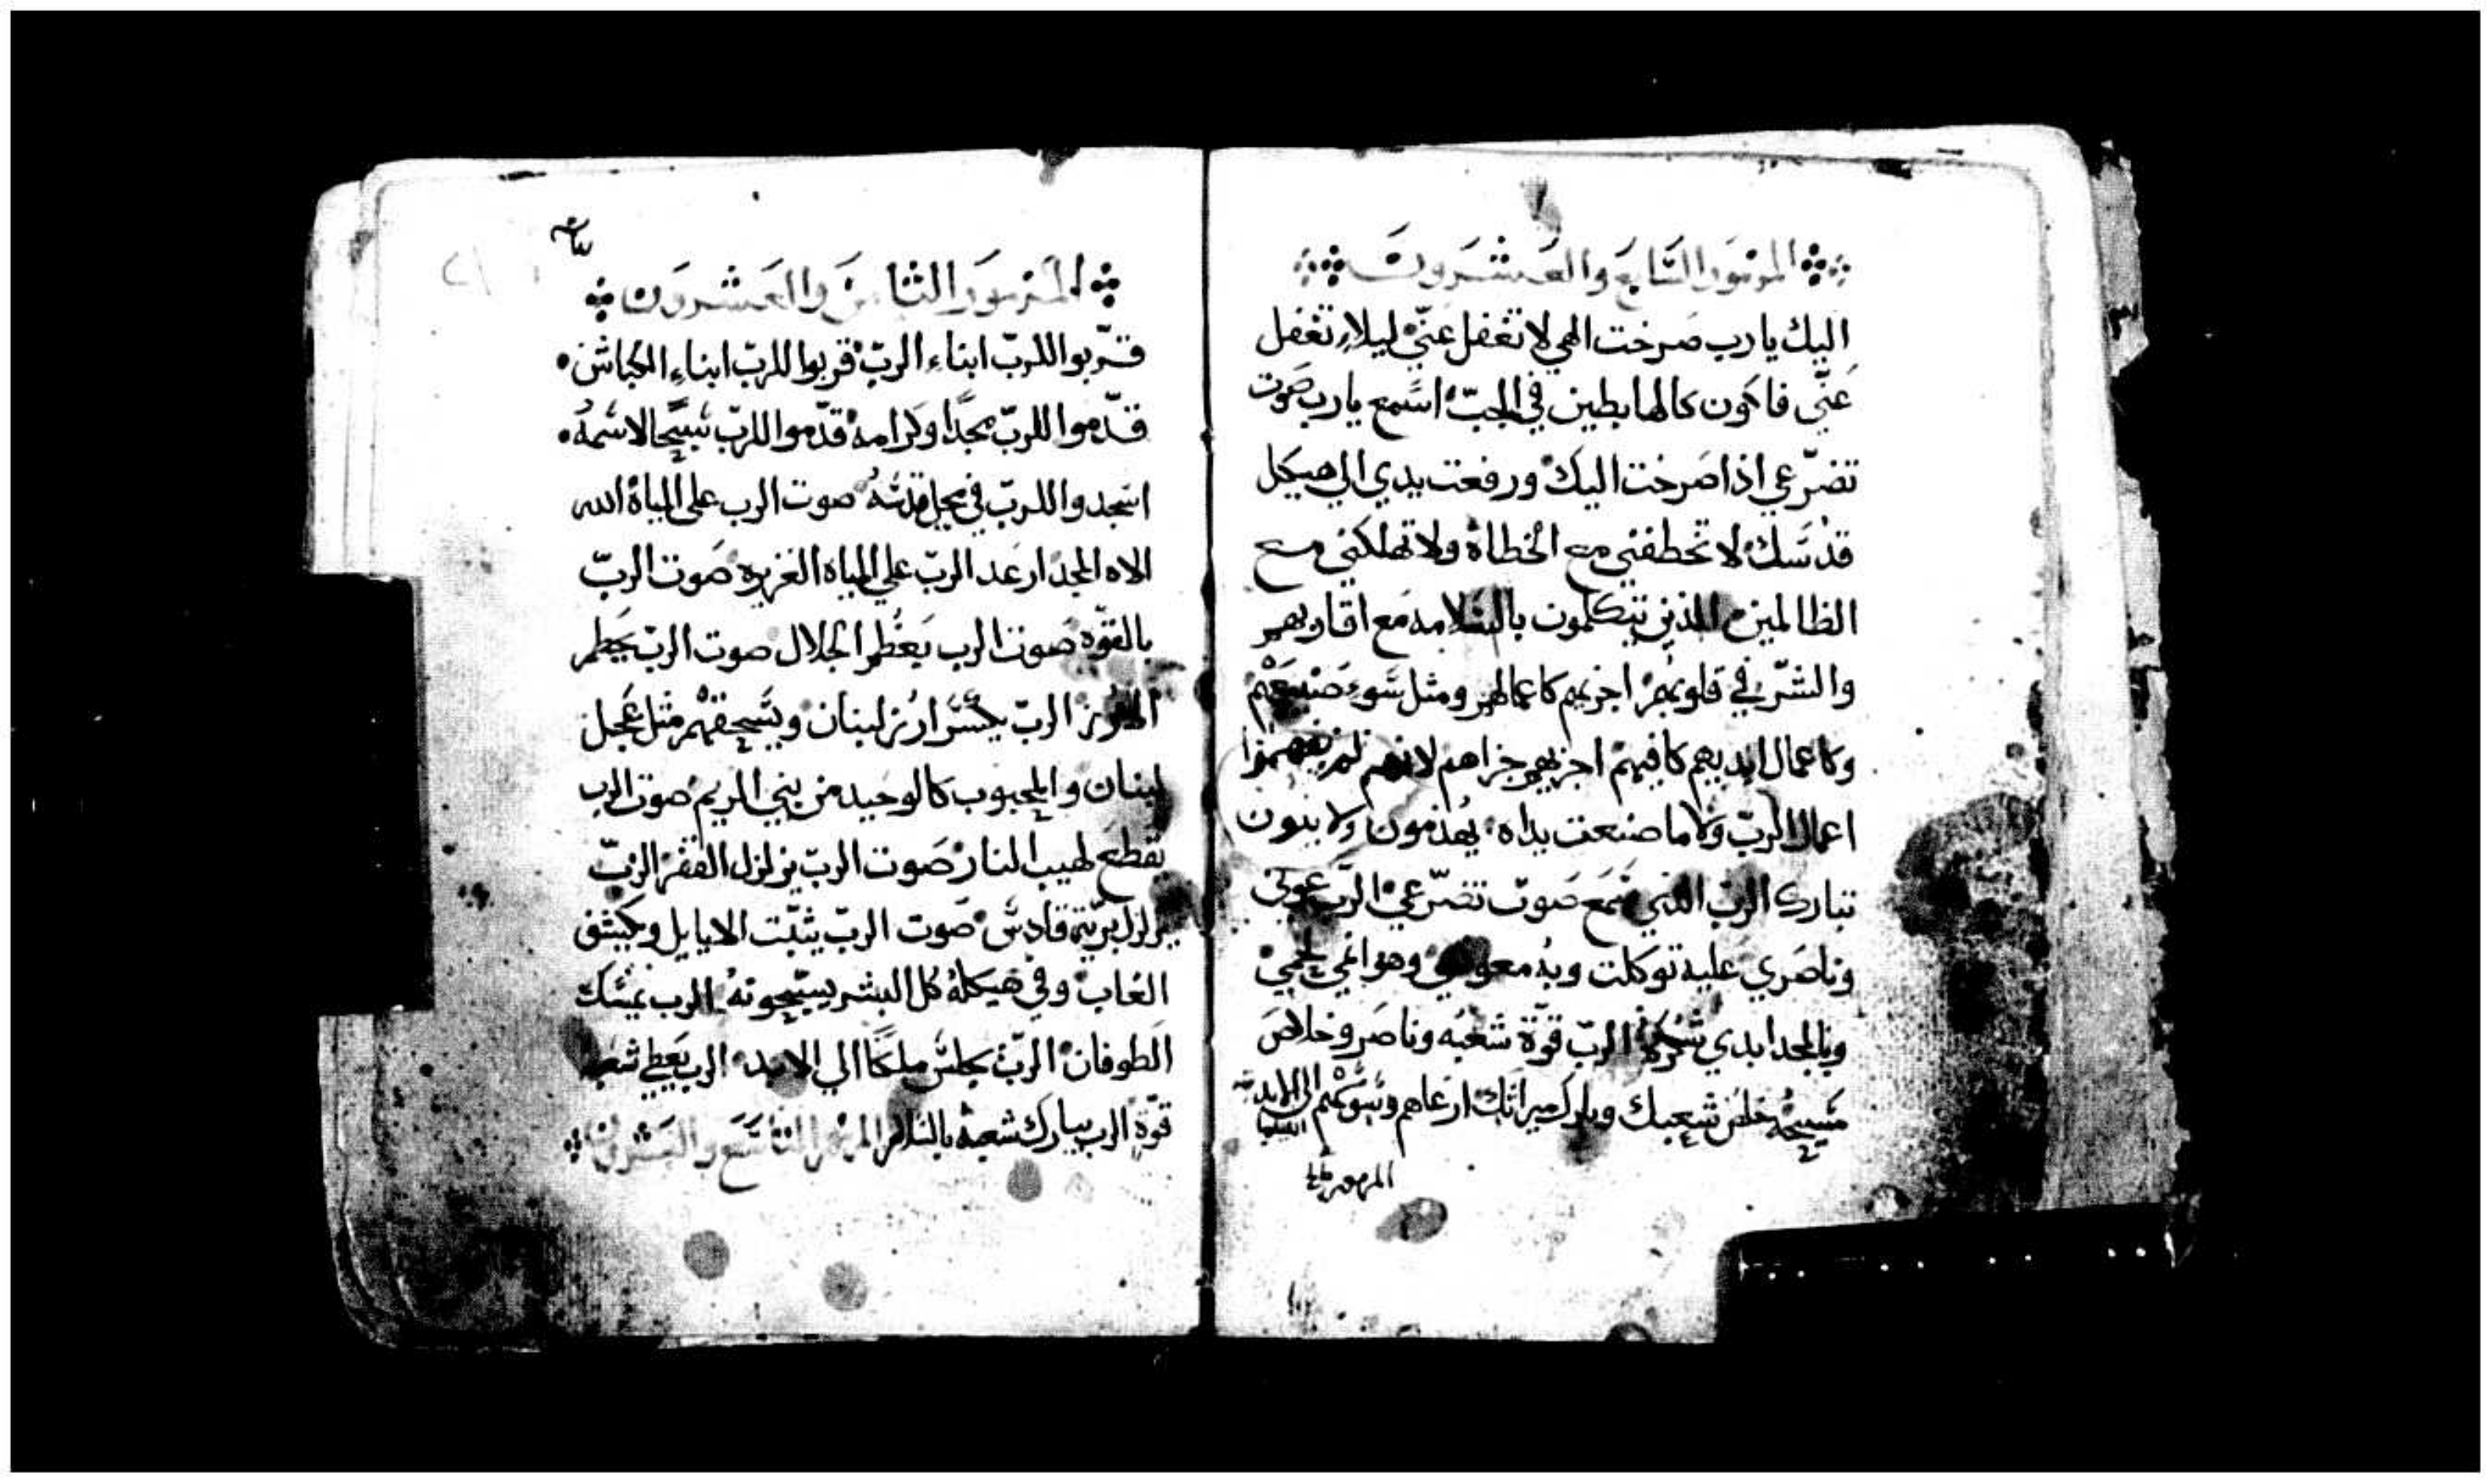 المزمور السابع والعشرون
اليك يا رب صرخت الهي لا تغفل عنّي ليلا تغفل
عنّي فاكون كالهابطين في الجبّ اسمع يا رب صوت
تضرّعي اذا صرخت اليك ورفعت يدي الي هيكل
قدسك لا تخطفني مع الخطاة ولا تهلكني مع
الظالمين الذين يتكلمون بالسلامه مع اقاربهم
والشرّ في قلوبهم اجزيهم كاعمالهم ومثل سوء صنيعهم
وكاعمال ايديهم كافيهم اجزيهم جزاهم لانهم لم يفهموا
اعمال الربّ ولا ما صنعت يداه يهدمون ولا يبنون
تبارك الرب الذي سمع صوت تضرّعي الرّب عوني
وناصري عليه توكلت وبه وهو لحمي
وبالمجد ابدي شكره الربّ قوّة شعبه وناصر وخلاص
مسيحه خلص شعبك وبارك ميراثك ارعاهم الي الابد
المزمور
المزمور الثامن والعشرون
قرّبوا للربّ ابناء الربّ قربوا للربّ ابناء الكباش
قدّموا للربّ مجدًا وكرامه قدّموا للربّ تسبيحا لاسمه
اسجدوا للربّ في قدسه صوت الرب على المياه الله
الاه المجد ارعد الربّ علي المياه الغزيره صوت الربّ
بالقوّه صوت الرب بعظم الجلال صوت الربّ يحطم
الارز الربّ يكسّر ارز لبنان ويسحقهم مثل عجل
لبنان والمحبوب كالوحيد من بني الريم صوت الرب
يقطع لهيب النار صوت الربّ يزلزل القفر الربّ
يزلزل بريّة قادس صوت الربّ يثبّت الايايل ويكشف
الغاب وفي هيكله كل البشر يسبّحونه الرب يمسك
الطوفان الربّ يجلس ملكًا الي الابد الرب يعطي شعبه
قوّة الرب يبارك شعبه بالسلام المزمور التاسع والعشرون